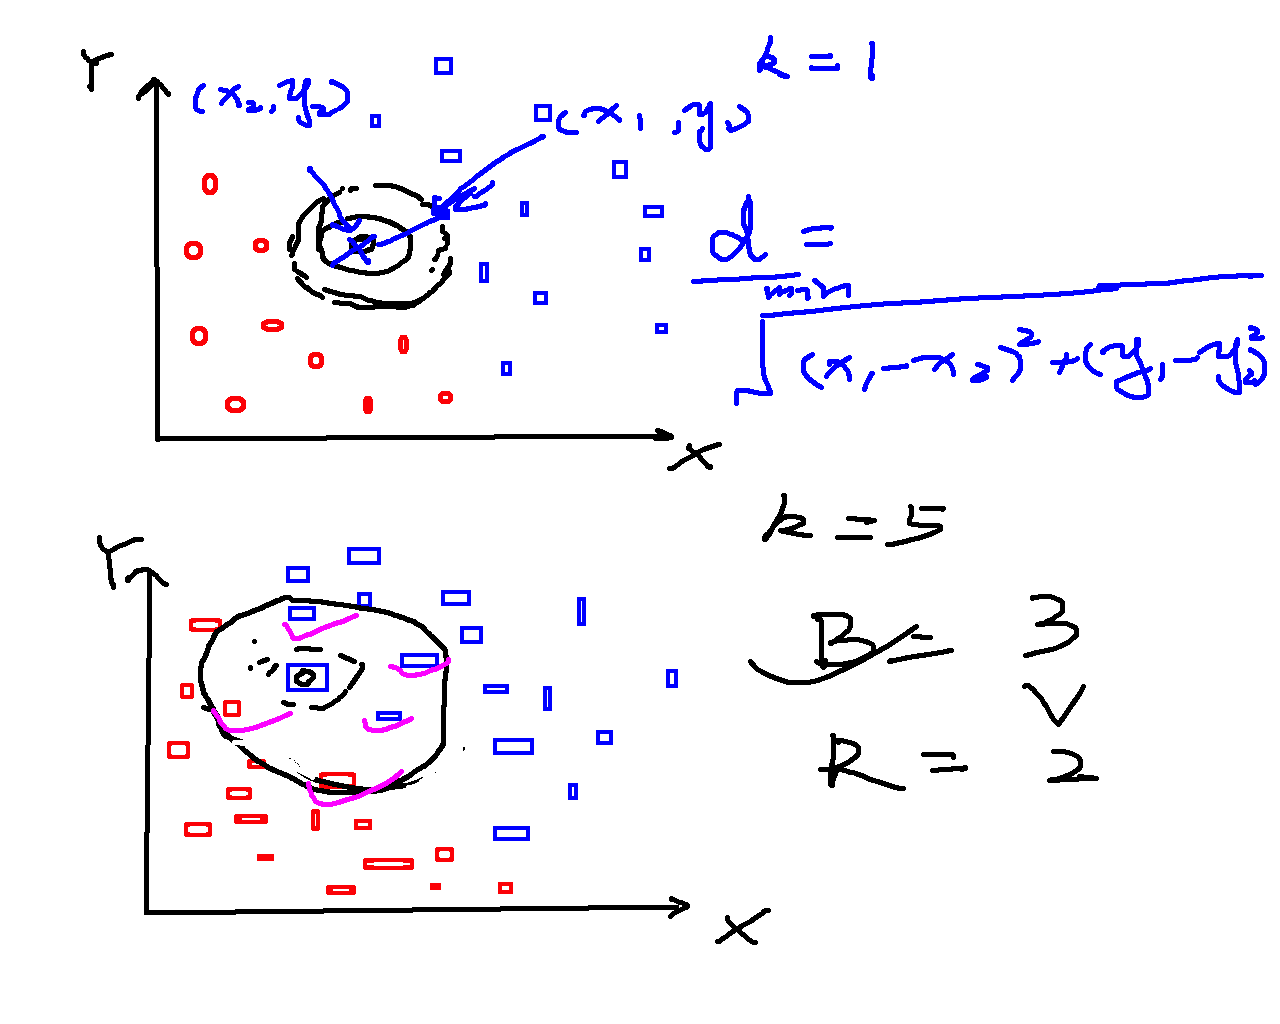 Y
(x₂, y₂)
(x₁, y₁)
k = 1
d =
min
√(x₁ - x₂)² + (y₁ - y₂)²
X
k = 5
Y
B = 3
V
R = 2
X